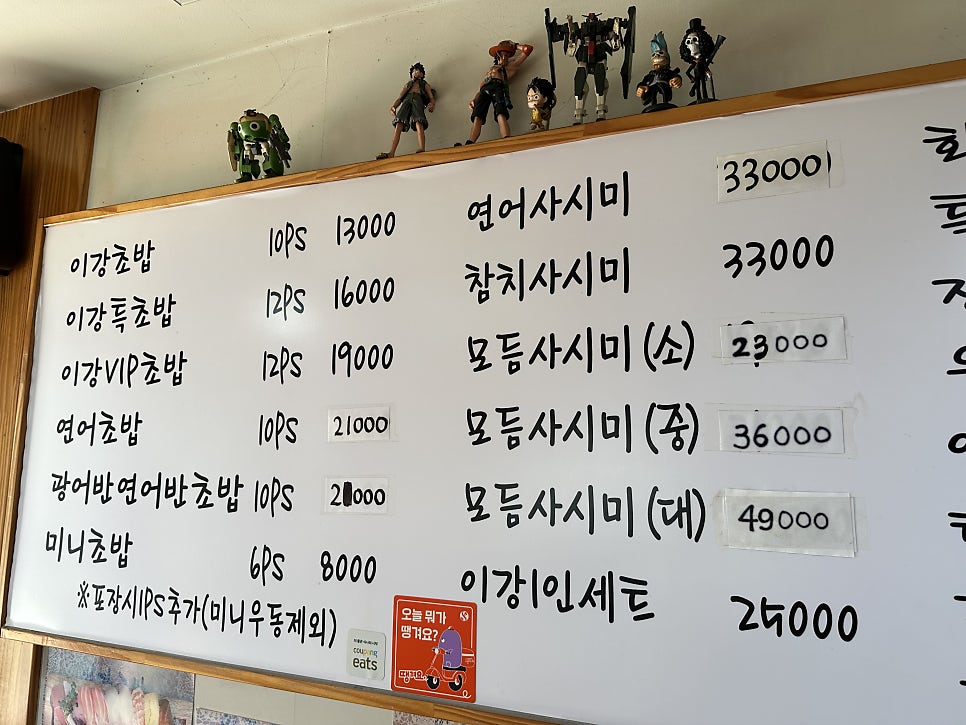 이강초밥 10PS 13000
이강특초밥 12PS 16000
이강VIP초밥 12PS 19000
연어초밥 10PS 21000
광어반연어반초밥 10PS 21000
미니초밥 6PS 8000
※포장시1PS추가(미니우동제외)
연어사시미 33000
참치사시미 33000
모듬사시미(소) 23000
모듬사시미(중) 36000
모듬사시미(대) 49000
이강1인세트 25000
coupang
eats
오늘 뭐가
땡겨요?
땡겨요